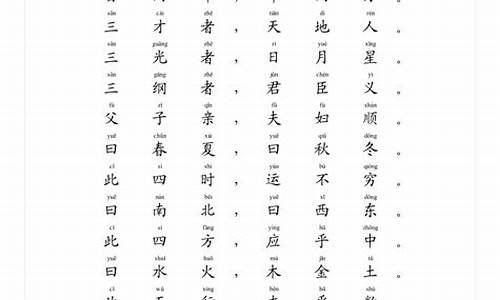 sān cái zhě tiān dì rén
三才者，天地人。
sān guāng zhě rì yuè xīng
三光者，日月星。
sān gāng zhě jūn chén yì
三纲者，君臣义。
fù zǐ qīn fū fù shùn
父子亲，夫妇顺。
yuē chūn xià yuē qiū dōng
曰春夏，曰秋冬。
cǐ sì shí yùn bù qióng
此四时，运不穷。
yuē nán běi yuē xī dōng
曰南北，曰西东。
cǐ sì fāng yìng hū zhōng
此四方，应乎中。
yuē shuǐ huǒ mù jīn tǔ
曰水火，木金土。
cǐ wǔ xíng běn hū shù